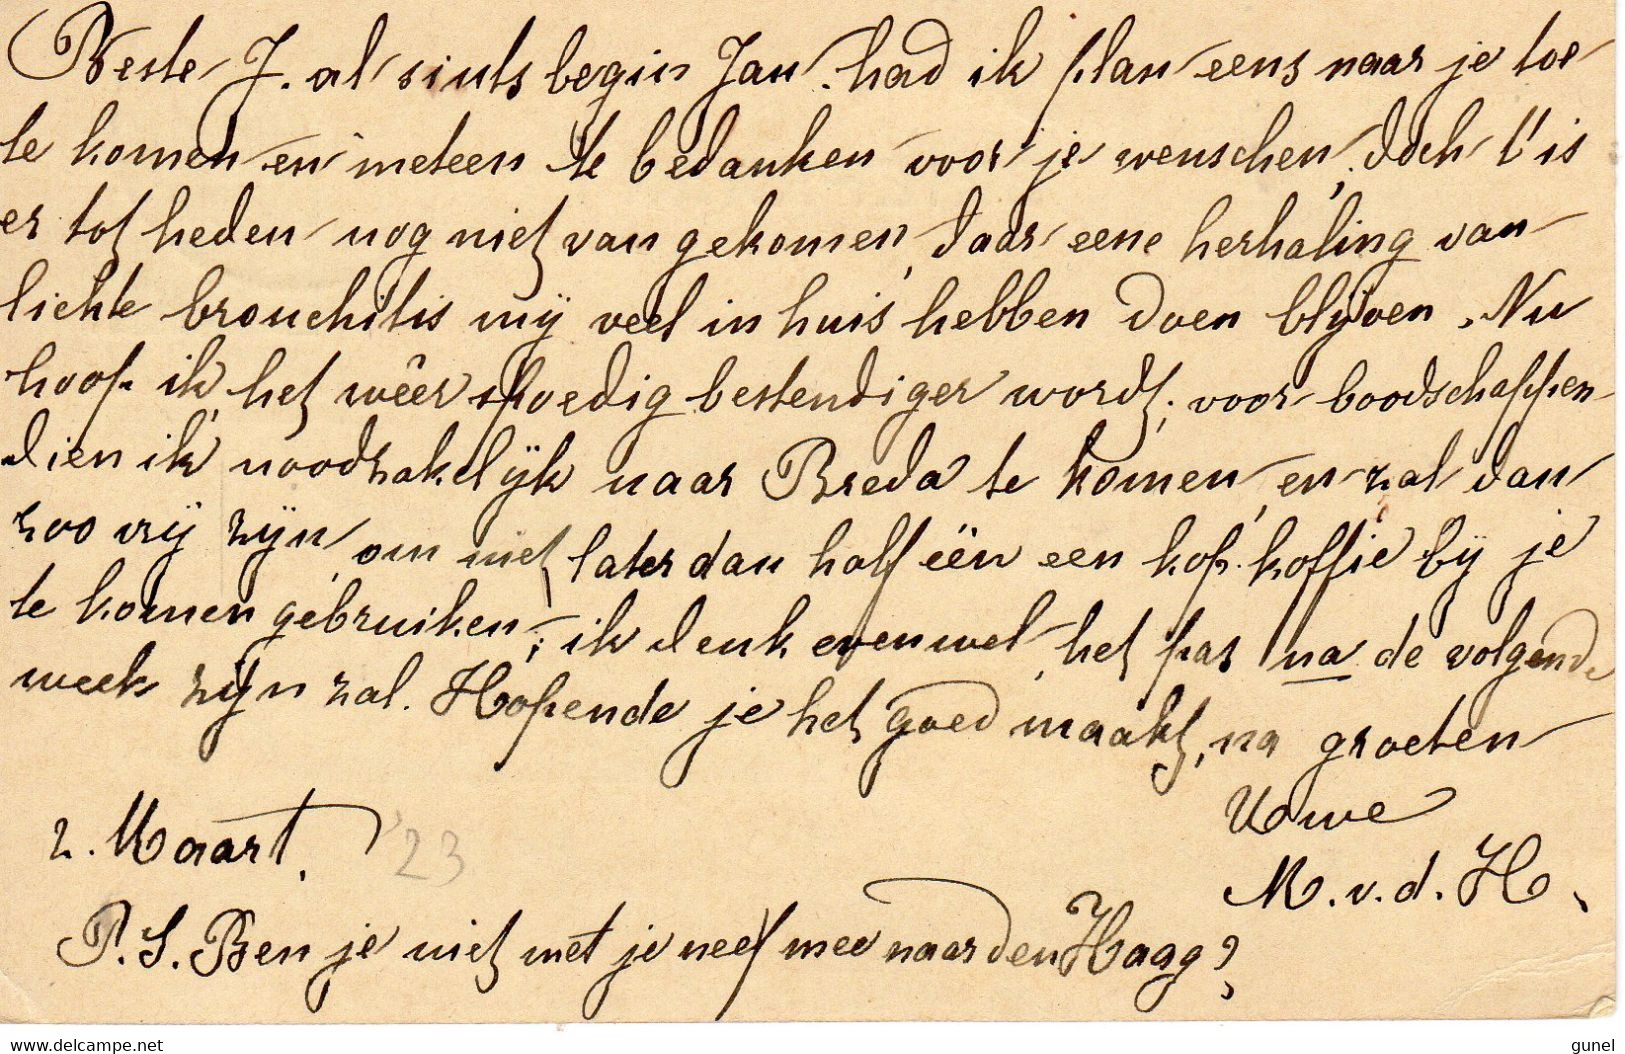 Beste J. al sints begin Jan. had ik plan eens naar je toe
te komen en meteen te bedanken voor je wenschen, doch t'is
er tot heden nog niet van gekomen, daar eene herhaling van
lichte bronchitis mij veel in huis hebben doen blijven. Nu
hoop ik het wêer spoedig bestendiger wordt; voor boodschappen
dien ik noodzakelijk naar Breda te komen, en zal dan
zoo vrij zijn, om niet later dan half één een kop koffie bij je
te komen gebruiken; ik denk evenwel, het pas na de volgende
week zijn zal. Hopende je het goed maakt, na groeten
Uwe
2. Maart. '23
M. v. d. H.
P.S. Ben je niet met je neef mee naar den Haag?
www.delcampe.net
gunel